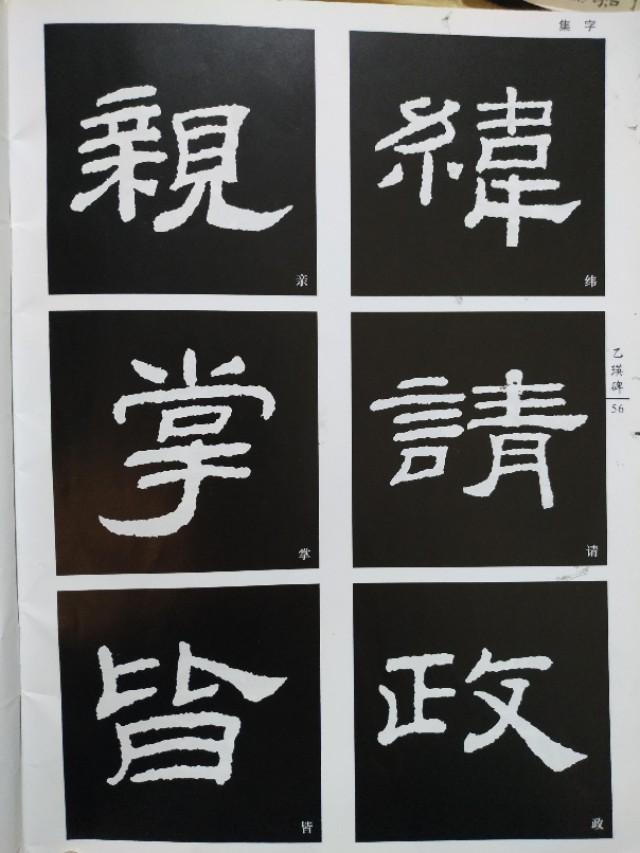 集 字
緯
纬
請
请
政
政
親
亲
掌
掌
皆
皆
乙瑛碑
56